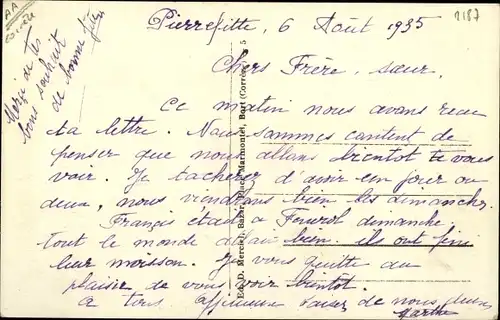 Pierrefitte, 6 Août 1935
Chers Frère, sœur,
Ce matin nous avons reçu
ta lettre. Nous sommes contents de
penser que nous allons bientot te vous
voir. Je tacherez d'avoir un jour ou
deux, nous viendrons bien les dimanches
François etait a dimanche
tout le monde allait bien. ils ont fini
leur moisson. Je vous quitte au
plaisir de vous voir bientot.
a tous baiser de nous deux
Marthe
Merci de tes
bons souhait
de bonne fête
Edit. D. Mercier, Bazar, Place Marmontel, Bort (Corrèze) 5
2187